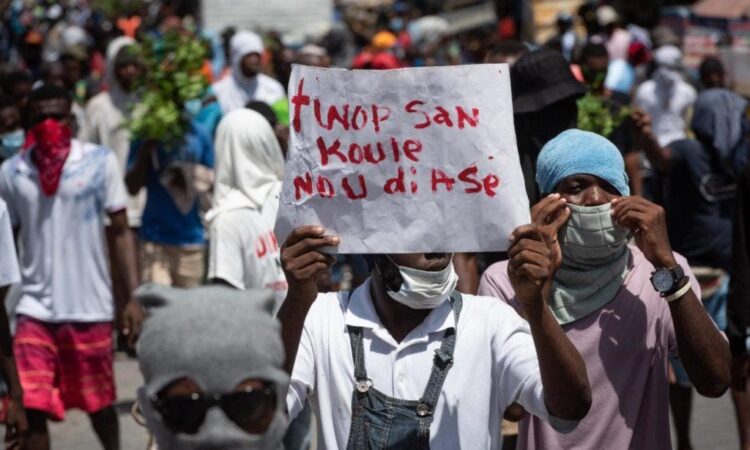 TWOP SAN
KOULE
NOU di ASe